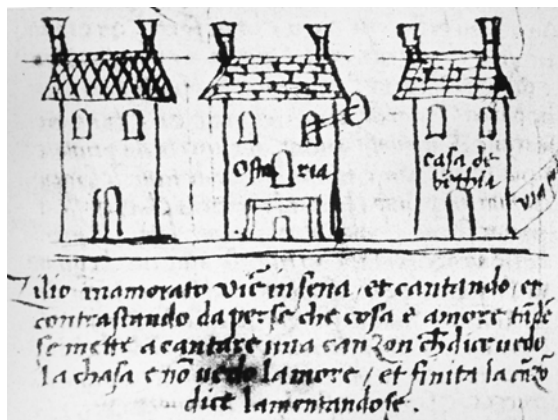 Ostaria
casa de
bethia
via
Zilio inamorato viẽ in sena, et cantando, et
contrastando da perse che cosa e amore tãde
se mette a cantare una canzon ch̃ dice vedo
la chasa e nõ vedo lamore, et finita la cãzõ
dice lamentandose.